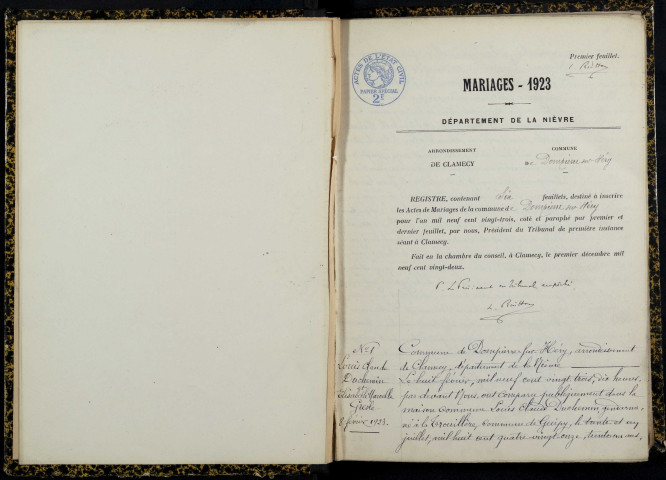 Premier feuillet.
ACTES DE L'ETAT CIVIL
PAPIER SPÉCIAL
2F
MARIAGES - 1923
DÉPARTEMENT DE LA NIÈVRE
ARRONDISSEMENT
DE CLAMECY
COMMUNE
de Dompierre-sur-Héry
REGISTRE, contenant Six feuillets, destiné à inscrire
les Actes de Mariages de la commune de Dompierre sur Héry
pour l'an mil neuf cent vingt-trois, coté et paraphé par premier et
dernier feuillet, par nous, Président du Tribunal de première instance
séant à Clamecy.
Fait en la chambre du conseil, à Clamecy, le premier décembre mil
neuf cent vingt-deux.
P. Le Président du Tribunal empêché
N° 1
Louis Claude
Duchemin
et
8 février 1923.
Commune de Dompierre-sur-Héry, arrondissement
de Clamecy, département de la Nièvre
Le huit février, mil neuf cent vingt trois, dix heures,
par devant Nous, ont comparu publiquement dans la
maison commune Louis Claude Duchemin
né à la Commune de Guipy, le trente et un
juillet, mil huit cent quatre-vingt-onze, trente un ans,